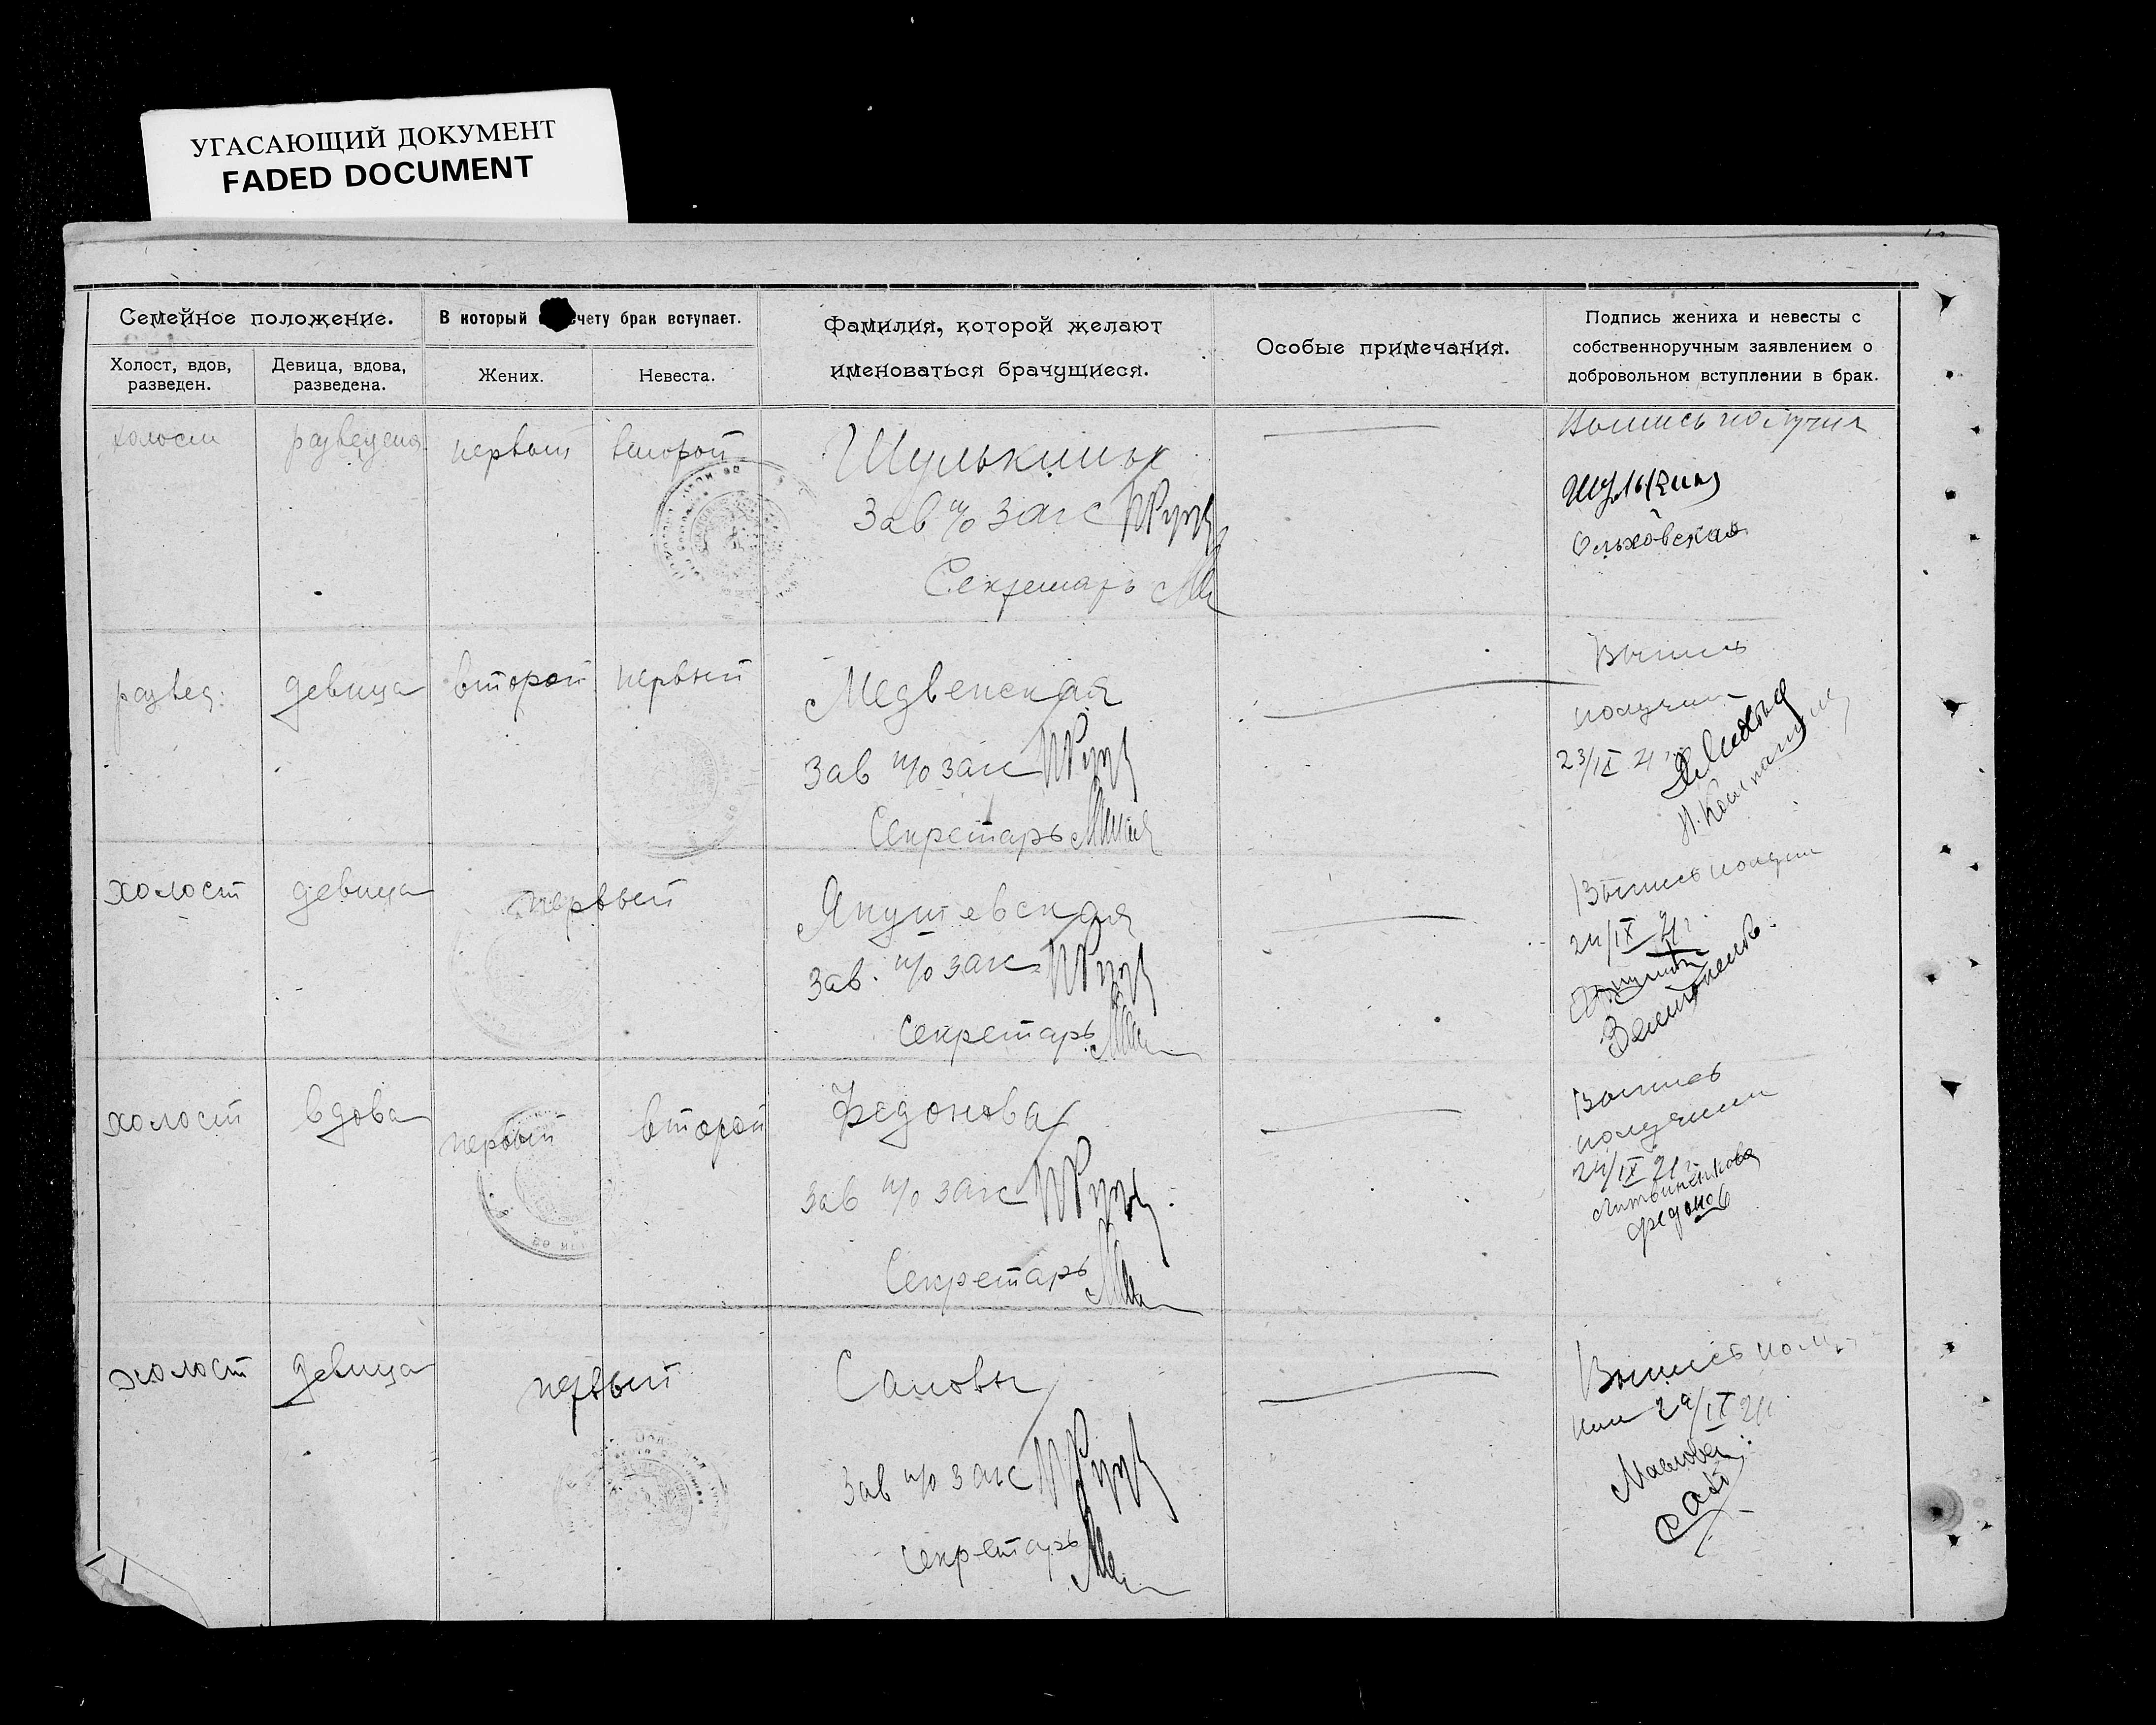 УГАСАЮЩИЙ ДОКУМЕНТ
FADED DOCUMENT
Семейное положение.
В который счету брак вступает.
Фамилия, которой желают
именоваться брачущиеся.
Особые примечания.
Подпись жениха и невесты с
собственноручным заявлением о
добровольном вступлении в брак.
Холост, вдов,
разведен.
Девица, вдова,
разведена.
Жених.
Невеста.
холост разведена первый второй Шулькины
Зав п/о загс
Секретарь
Выпись получил
Шулькин
Ольховская
развед. девица второй первый Медвенская
Зав п/о загс
Секретарь
Выпись
получил
23/IX 21
холост девица первый Якушевская
Зав. п/о загс
Секретарь
Выпись получил
24/IX 21 г.
холост вдова первый второй Федонова
Зав п/о загс
Секретарь
Выпись
получили
24/IX 21 г.
Литвиненкова
Федонов
холост девица первый Саловы
Зав п/о загс
Секретарь
Выпись полу
чили 24/IX 21